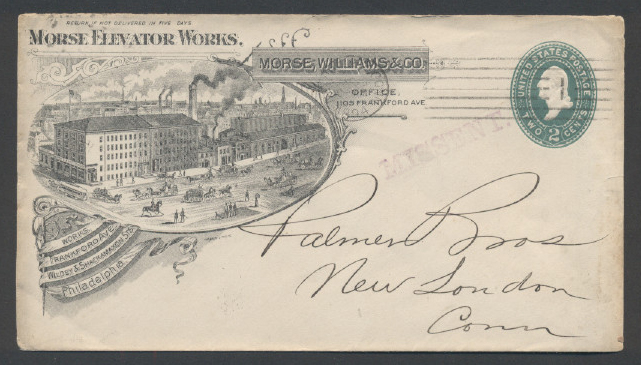 RETURN IF NOT DELIVERED IN FIVE DAYS
MORSE ELEVATOR WORKS.
MORSE, WILLIAMS & CO.
OFFICE,
1105 FRANKFORD AVE
UNITED STATES POSTAGE
TWO 2 CENTS
MISSENT.
WORKS
FRANKFORD AVE.
WILDEY & SHACKAMAXON STS
Philadelphia
Palmer Bros
New London
Conn